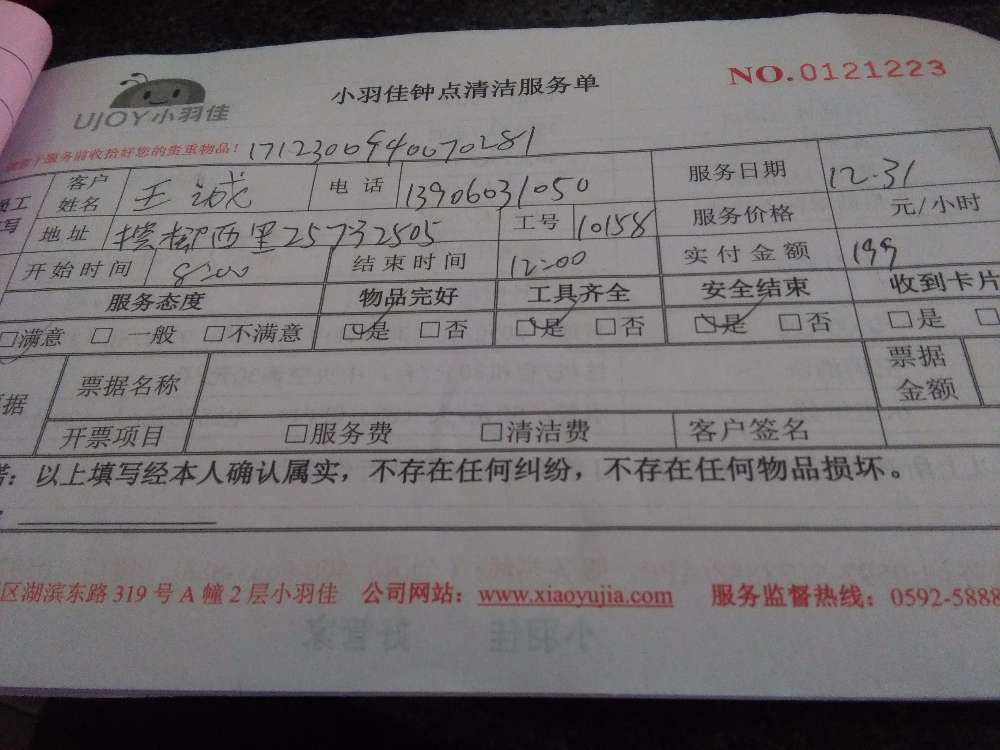 UJOY小羽佳
小羽佳钟点清洁服务单
NO.0121223
服务前收拾好您的贵重物品！ 171230094007028 1
客户姓名 王诚 电话 13906031050 服务日期 12.31
地址 西里25732505 工号 10158 服务价格 元/小时
开始时间 8:00 结束时间 12:00 实付金额 199
服务态度 物品完好 工具齐全 安全结束 收到卡片
□满意 □ 一般 □不满意 □是 □否 □是 □否 □是 □否 □是 □
据 票据名称 票据金额
开票项目 □服务费 □清洁费 客户签名
：以上填写经本人确认属实，不存在任何纠纷，不存在任何物品损坏。
区湖滨东路 319 号 A 幢 2 层小羽佳 公司网站：www.xiaoyujia.com 服务监督热线：0592-5888